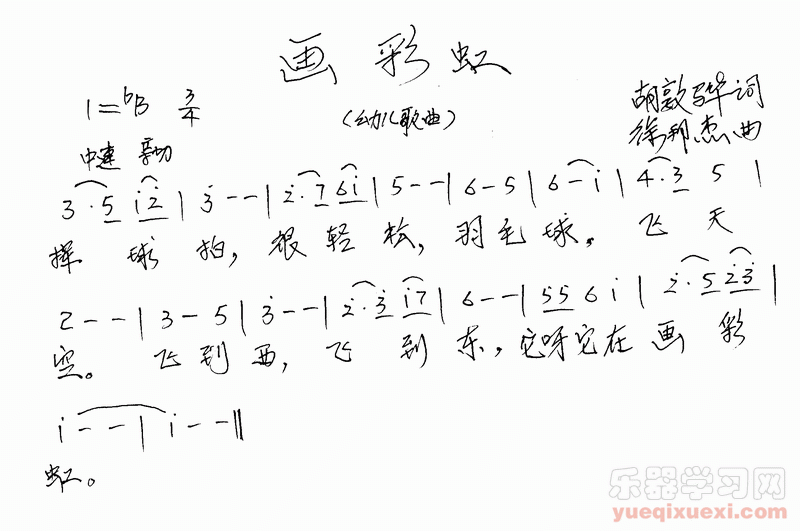 画彩虹
1=♭B 3/4
(幼儿歌曲)
胡敦骅词
中速
徐邦杰曲
3·5 i̇2̇ | 3̇ - - | 2̇·7 6i̇ | 5 - - | 6 - 5 | 6 - i̇ | 4·3 5 |
挥球拍,很轻松,羽毛球,飞天
2 - - | 3 - 5 | 3̇ - - | 2̇·3̇ i̇7 | 6 - - | 55 6 i̇ | 2̇·5 2̇3̇ |
空。飞到西,飞到东,它呀它在画彩
i̇ - - | i̇ - - ‖
虹。
乐器学习网
yueqixuexi.com